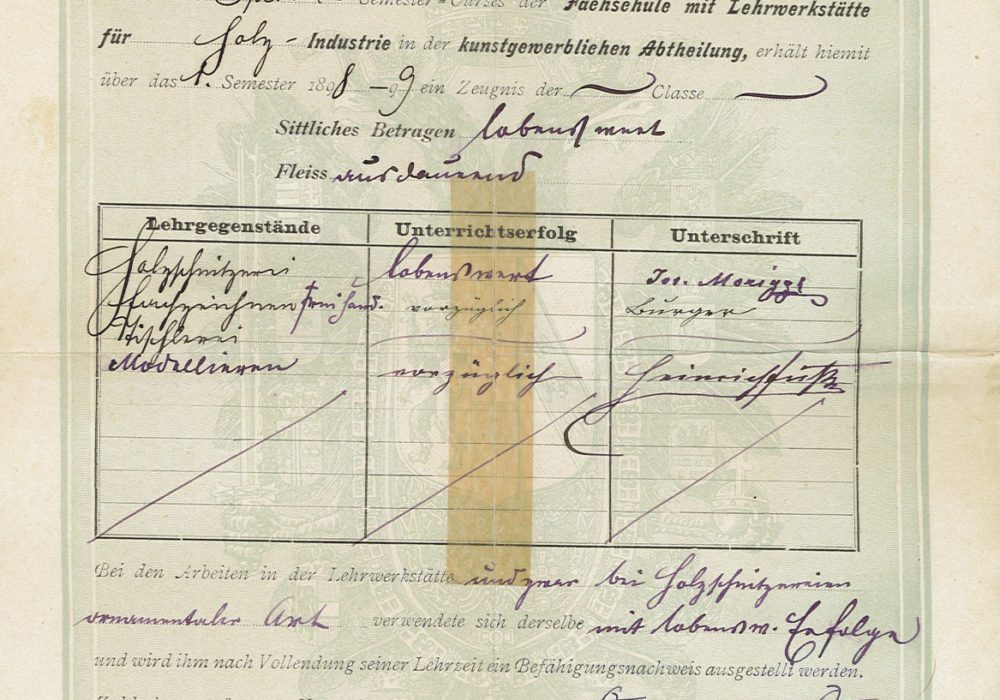 Semester-Curses der Fachschule mit Lehrwerkstätte
für Holz - Industrie in der kunstgewerblichen Abtheilung, erhält hiemit
über das 1. Semester 1898-99 ein Zeugnis der Classe
Sittliches Betragen lobenswert
Fleiss ausdauernd
Lehrgegenstände Unterrichtserfolg Unterschrift
Holzschnitzerei lobenswert Jos. Moriggl
Fachzeichnen freihand. vorzüglich Burger
Tischlerei
Modellieren vorzüglich Heinrich Fuss
Bei den Arbeiten in der Lehrwerkstätte und zwar bei Holzschnitzereien
ornamentaler Art verwendete sich derselbe mit lobensw. Erfolge
und wird ihm nach Vollendung seiner Lehrzeit ein Befähigungsnachweis ausgestellt werden.